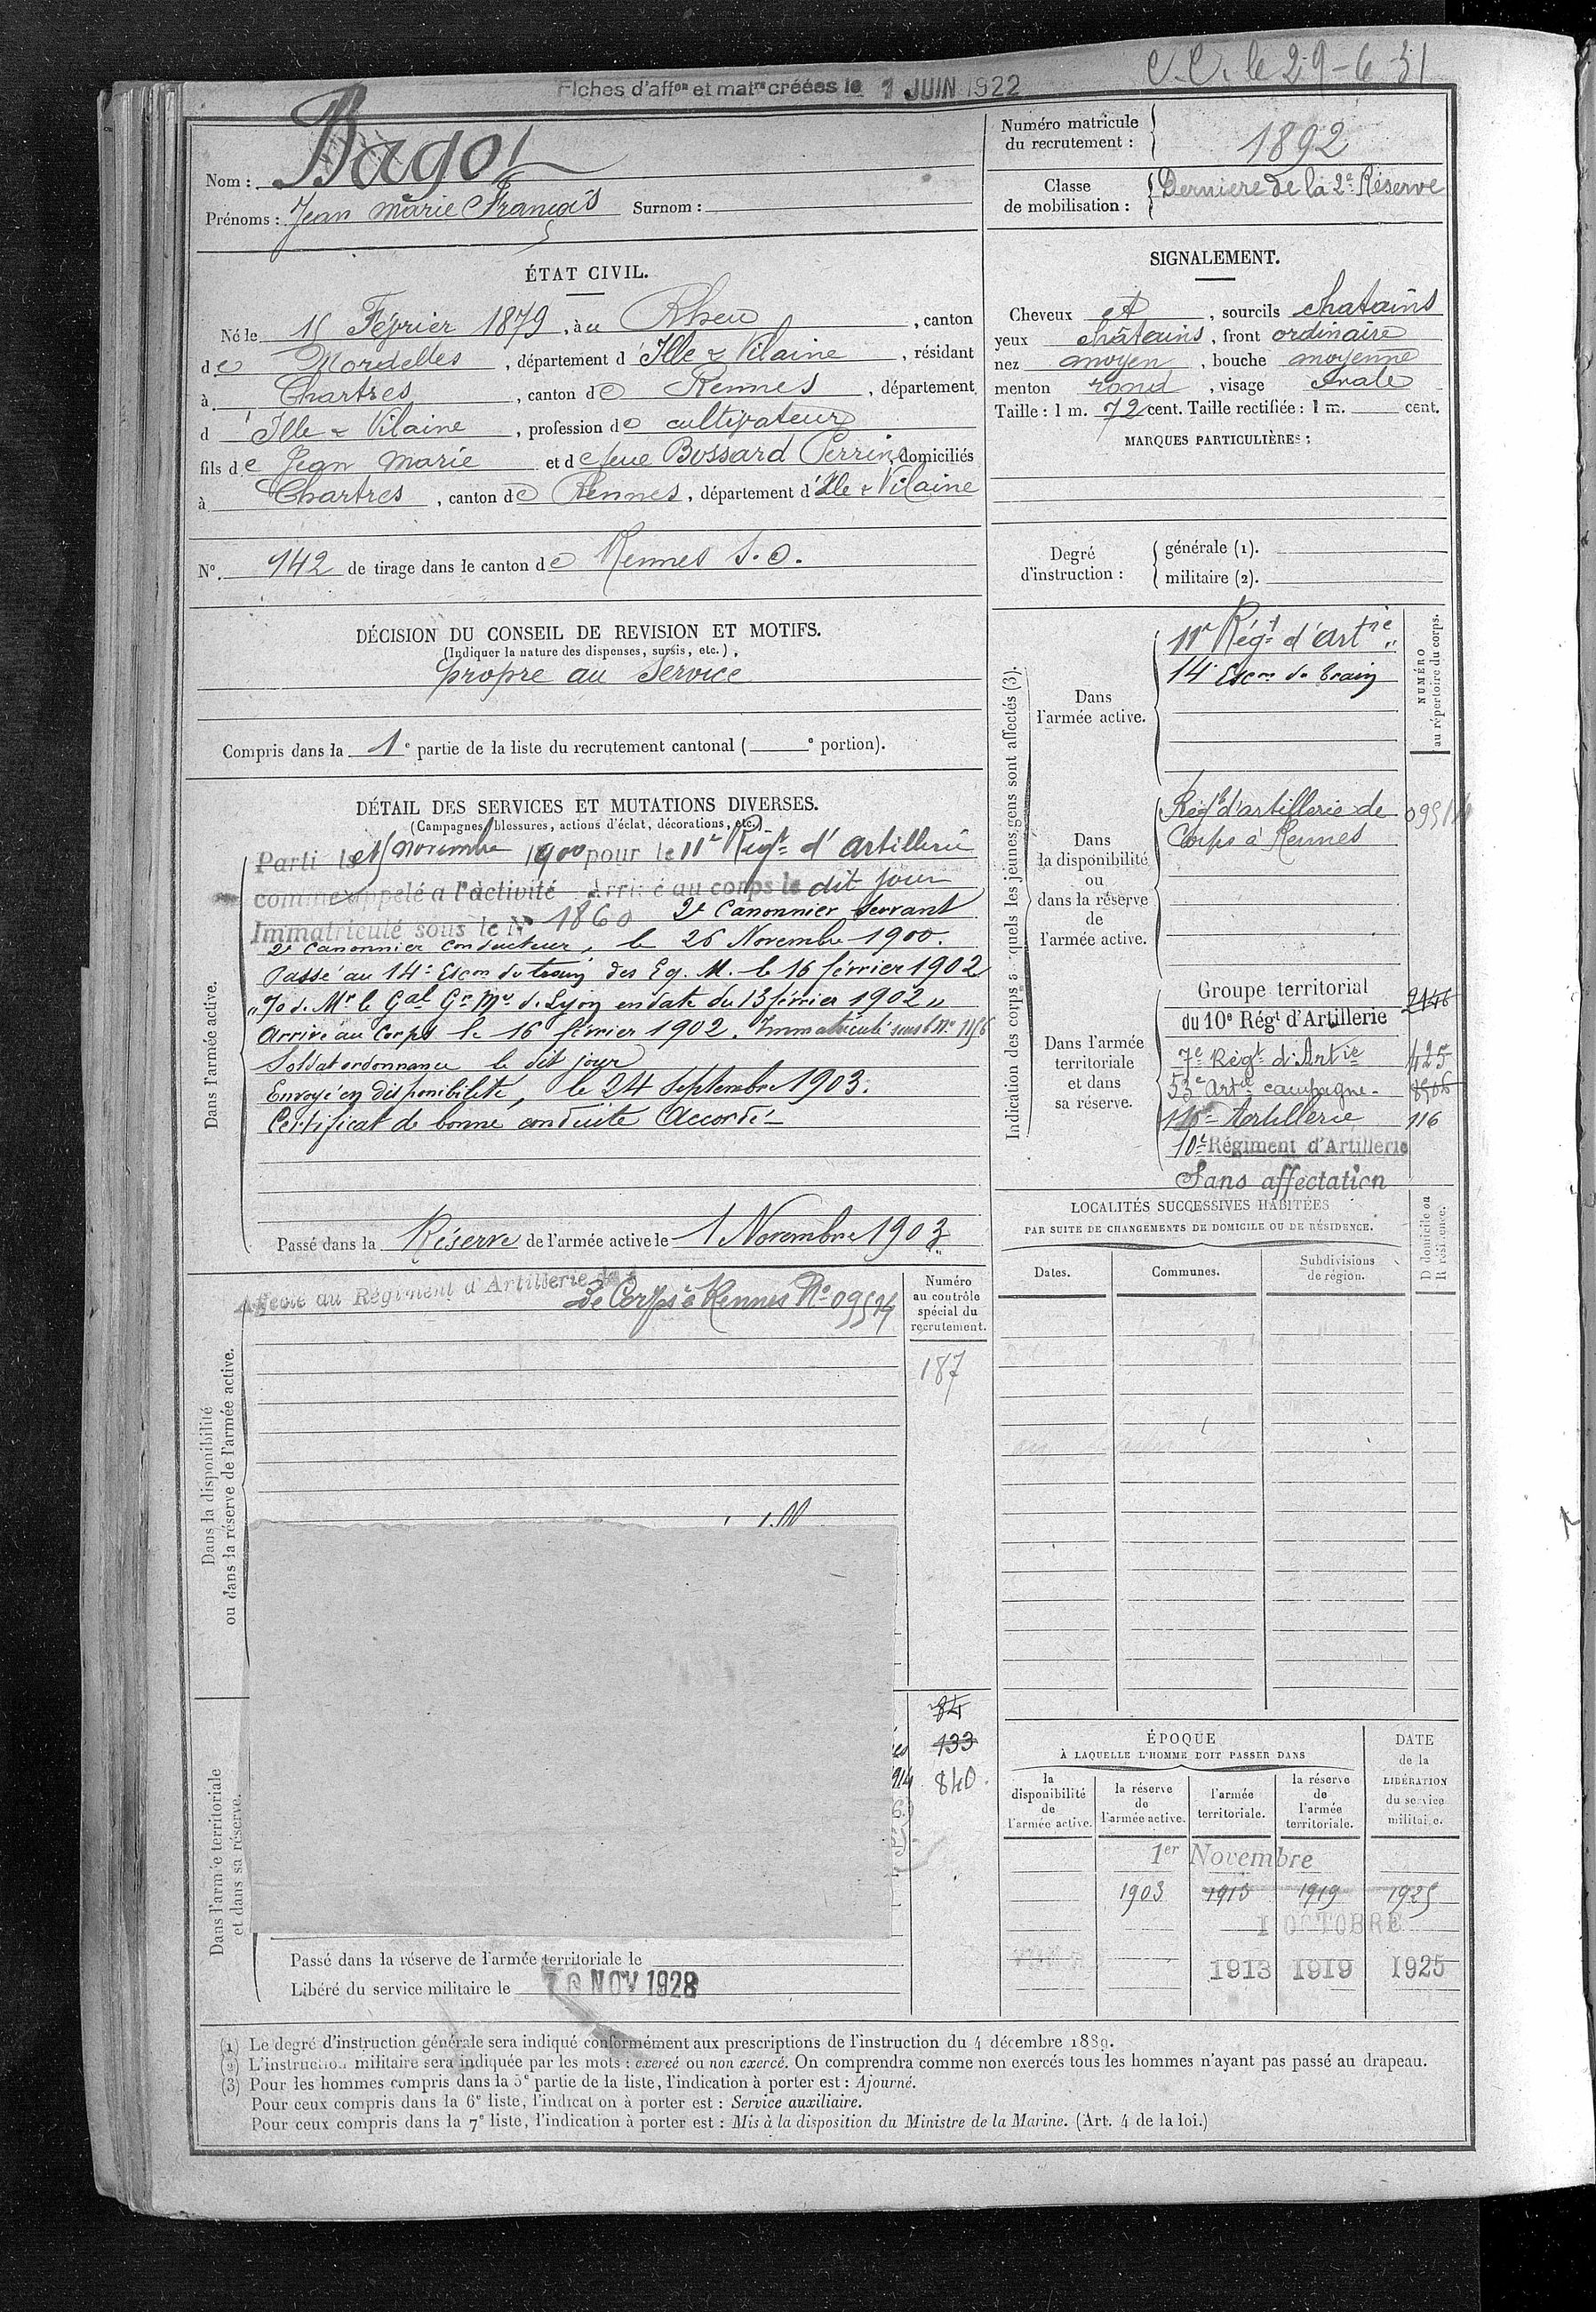 Fiches d'affon et matre créées le 1 JUIN 1922
C.C. le 29-6-31
Nom : Bagot
Prénoms : Jean Marie François Surnom :
Numéro matricule du recrutement : 1892
Classe de mobilisation : Dernière de la 2e Réserve
ÉTAT CIVIL.
Né le 15 Février 1879, à u Rheu, canton
de Mordelles, département d Ille & Vilaine, résidant
à Chartres, canton de Rennes, département
d' Ille & Vilaine, profession de cultivateur
fils de Jean Marie et de feue Bossard Perrine, domiciliés
à Chartres, canton de Rennes, département d'Ille & Vilaine
N° 142 de tirage dans le canton de Rennes S.O.
SIGNALEMENT.
Cheveux et, sourcils chatains
yeux châtains, front ordinaire
nez moyen, bouche moyenne
menton rond, visage ovale
Taille : 1 m. 72 cent. Taille rectifiée : 1 m. cent.
MARQUES PARTICULIÈRES :
Degré d'instruction :
générale (1).
militaire (2).
DÉCISION DU CONSEIL DE REVISION ET MOTIFS.
(Indiquer la nature des dispenses, sursis, etc.)
propre au service
Compris dans la 1e partie de la liste du recrutement cantonal ( e portion).
DÉTAIL DES SERVICES ET MUTATIONS DIVERSES.
(Campagnes, blessures, actions d'éclat, décorations, etc.)
Dans l'armée active.
Parti le 15 novembre 1900 pour le 11e Régt d'artillerie
comme appelé à l'activité Arrivé au corps le dit jour
Immatriculé sous le N° 1860 2e Canonnier servant
2e canonnier conducteur, le 26 Novembre 1900.
Passé au 14e Escon du train des Eq. M. le 16 février 1902
"/o d. Mr le Gal Gr Mre d. Lyon en date du 13 février 1902 "
Arrivé au Corps le 16 février 1902. Immatriculé sous le No
Soldat ordonnance le dit jour
Envoyé en disponibilité, le 24 Septembre 1903.
Certificat de bonne conduite Accordé
Passé dans la Réserve de l'armée active le 1 Novembre 1903
Indication des corps auxquels les jeunes gens sont affectés (3).
NUMÉRO au répertoire du corps.
Dans l'armée active.
11e Régt d'artie
14e Escon du train
Dans la disponibilité ou dans la réserve de l'armée active.
Régt d'artillerie de
Corps à Rennes
Dans l'armée territoriale et dans sa réserve.
Groupe territorial 2146
du 10e Régt d'Artillerie
7e Régt d'Artie 425
53e Artie campagne
Artillerie 116
10e Régiment d'Artillerie
Sans affectation
LOCALITÉS SUCCESSIVES HABITÉES
PAR SUITE DE CHANGEMENTS DE DOMICILE OU DE RÉSIDENCE.
Dates.
Communes.
Subdivisions de région.
D domicile ou R résidence.
Dans la disponibilité ou dans la réserve de l'armée active.
Affecté au Régiment d'Artillerie
de Corps à Rennes No 09514
Numéro au contrôle spécial du recrutement.
187
84
133
840
Dans l'armée territoriale et dans sa réserve.
Passé dans la réserve de l'armée territoriale le
Libéré du service militaire le 10 NOV 1928
ÉPOQUE
À LAQUELLE L'HOMME DOIT PASSER DANS
la disponibilité de l'armée active.
la réserve de l'armée active.
l'armée territoriale.
la réserve de l'armée territoriale.
DATE de la LIBÉRATION du service militaire.
1er Novembre
1903 1913 1919 1925
1 OCTOBRE
1913 1919 1925
(1) Le degré d'instruction générale sera indiqué conformément aux prescriptions de l'instruction du 4 décembre 1889.
(2) L'instruction militaire sera indiquée par les mots : exercé ou non exercé. On comprendra comme non exercés tous les hommes n'ayant pas passé au drapeau.
(3) Pour les hommes compris dans la 5e partie de la liste, l'indication à porter est : Ajourné.
Pour ceux compris dans la 6e liste, l'indication à porter est : Service auxiliaire.
Pour ceux compris dans la 7e liste, l'indication à porter est : Mis à la disposition du Ministre de la Marine. (Art. 4 de la loi.)